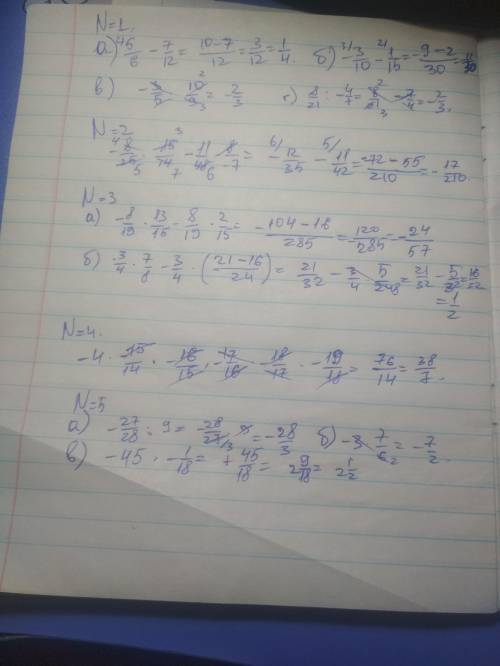 N=1.
а) 5/6 - 7/12 = (10-7)/12 = 3/12 = 1/4. б) -3/10 - 1/15 = (-9-2)/30 = 11/30
в) -3/5 · 10/9 = 2/3 г) 8/21 : -4/7 = 8/21 · -7/4 = -2/3.
N=2
-8/25 · 15/14 - 11/48 · 8/7 = -12/35 - 11/42 = (-72-55)/210 = -17/210.
N=3
а) -8/19 · 13/15 - 8/19 · 2/15 = -(104-16)/285 = 120/285 = -24/57
б) 3/4 · 7/8 - 3/4 · ((21-16)/24) = 21/32 - 3/4 · 5/24 8 = 21/32 - 5/32 = 16/32
= 1/2
N=4.
-4 · 15/14 · -16/15 · -17/16 · -18/17 · -19/18 = 76/14 = 38/7.
N=5
а) -27/28 : 9 = -28/27 · 9 = -28/3 б) -3 · 7/6 2 = -7/2.
в) -45 · -1/18 = +45/18 = 2 9/18 = 2 1/2